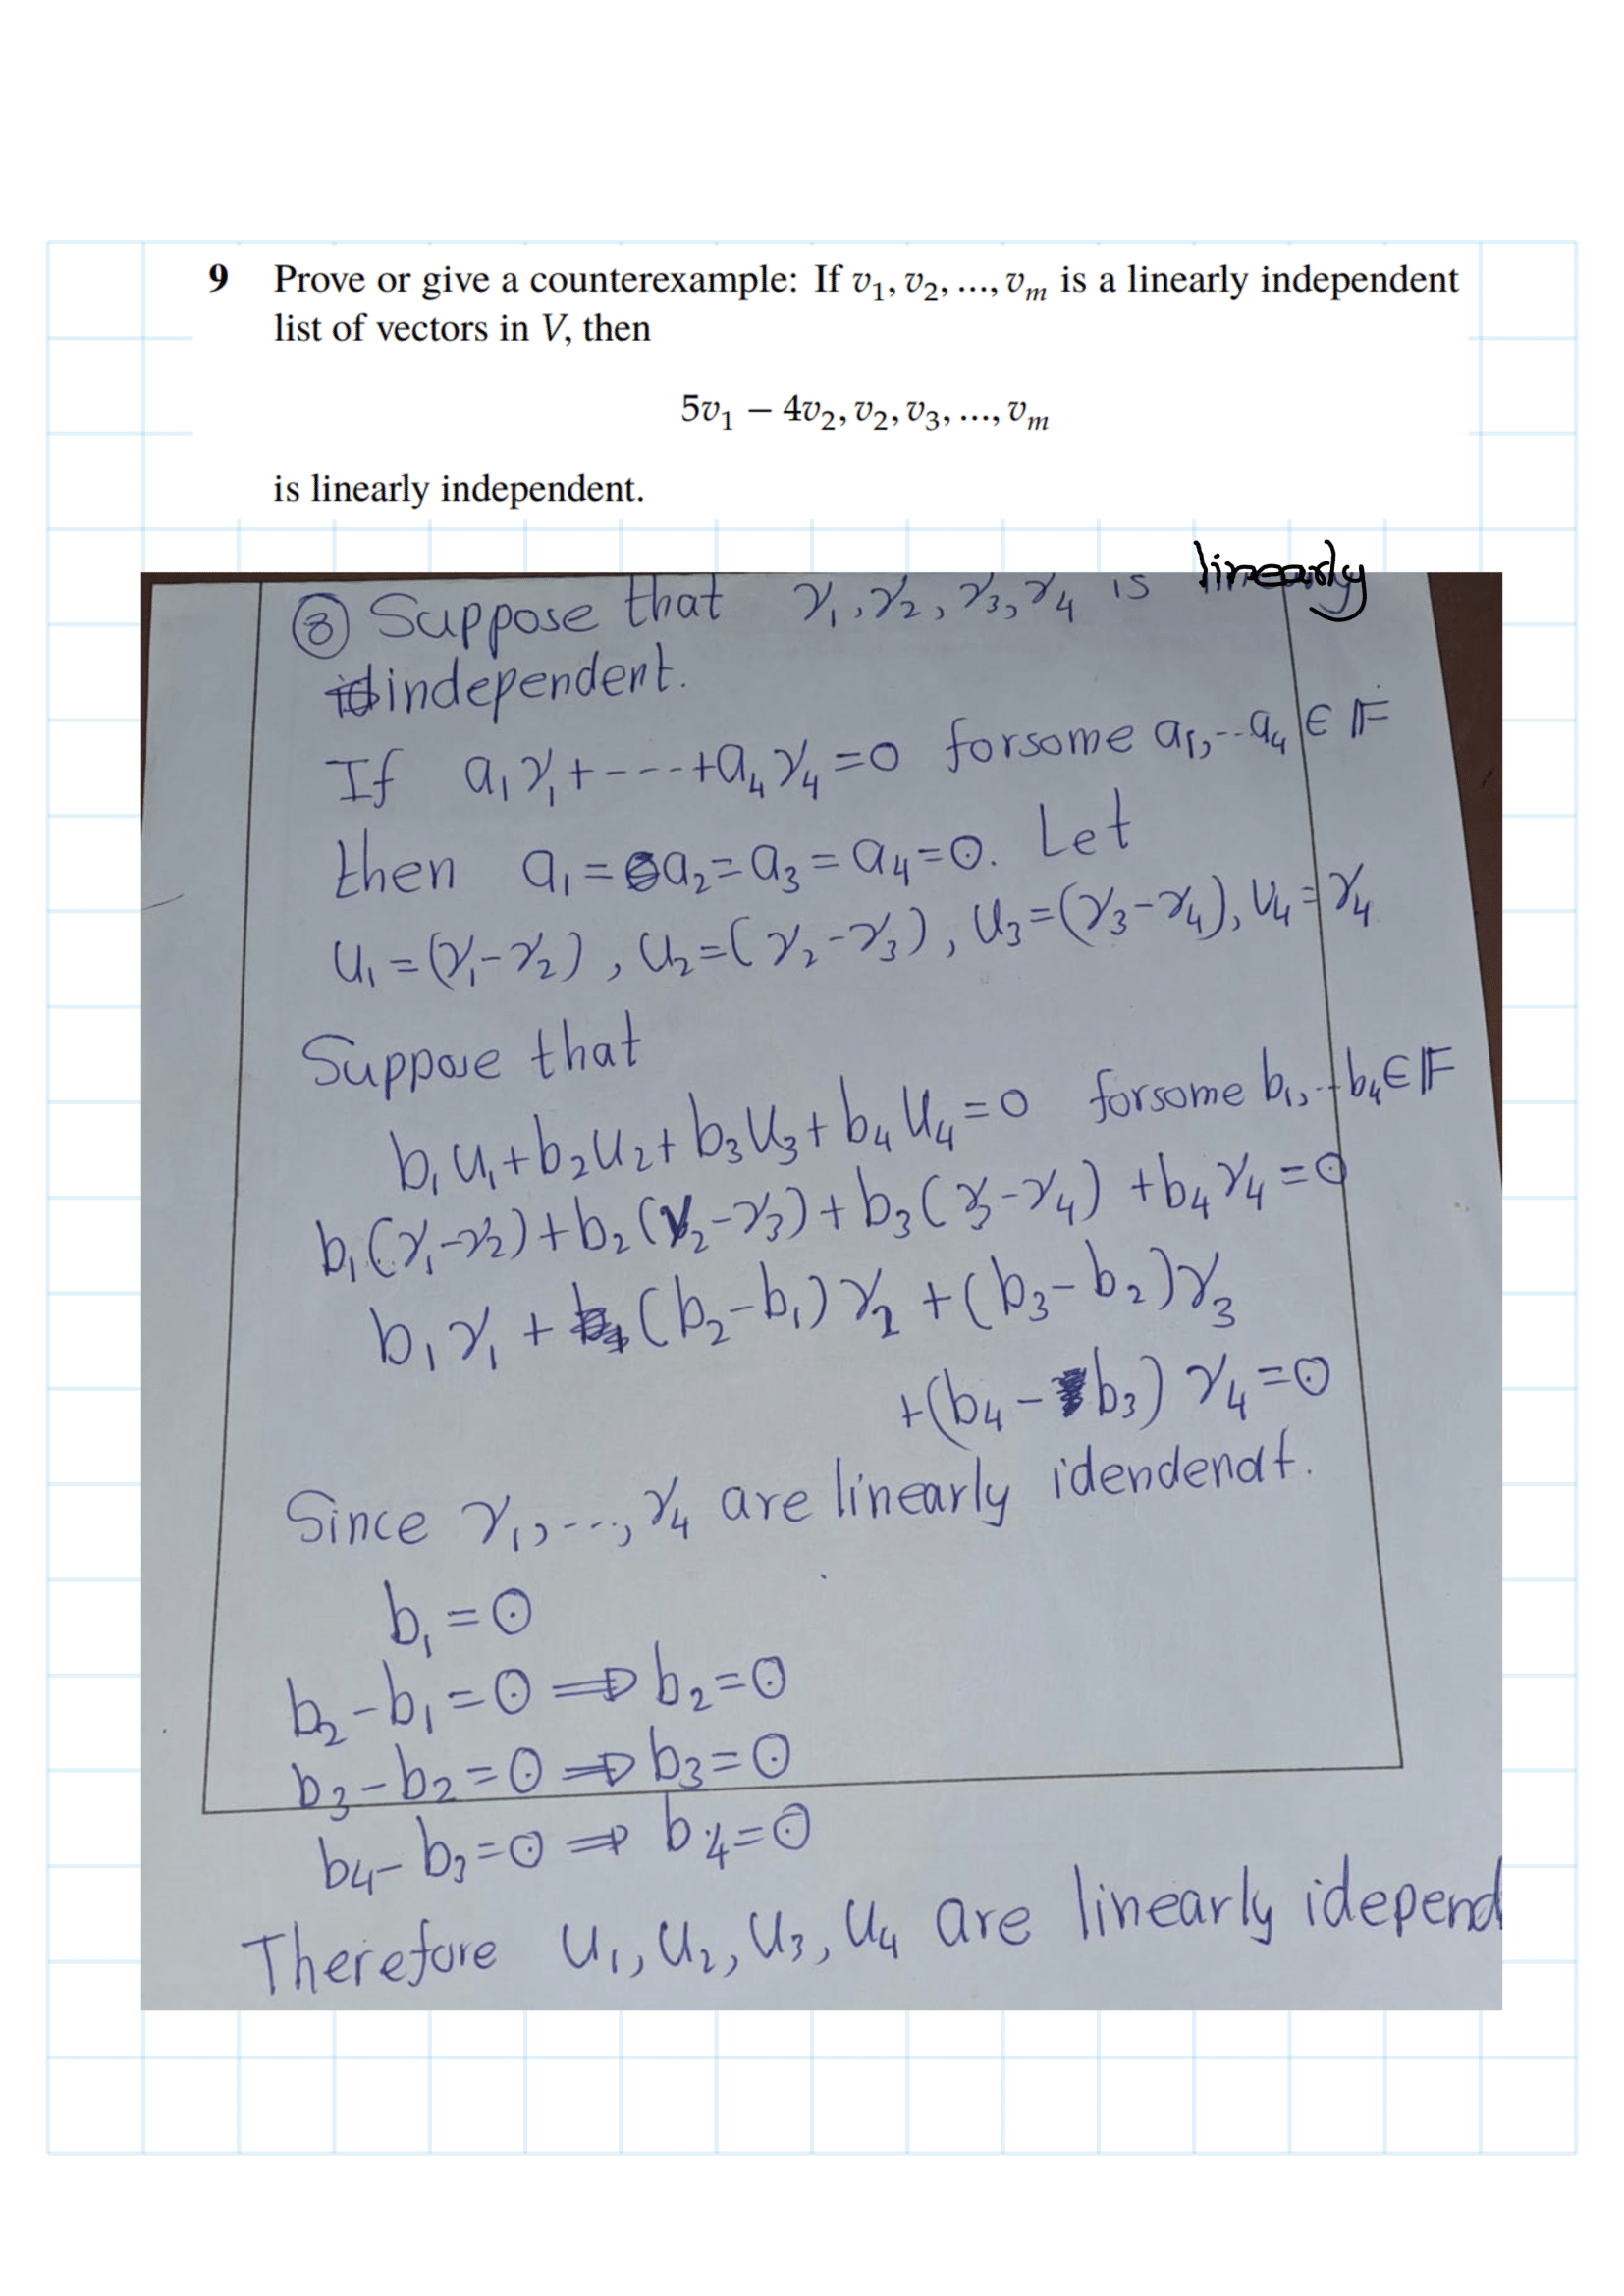 9 Prove or give a counterexample: If v₁, v₂, ..., vₘ is a linearly independent
list of vectors in V, then
5v₁ − 4v₂, v₂, v₃, ..., vₘ
is linearly independent.
⑧ Suppose that γ₁, γ₂, γ₃, γ₄ is linearly
independent.
If a₁γ₁+----+a₄γ₄=0 forsome a₁,--a₄ ∈ 𝔽
then a₁=a₂=a₃=a₄=0. Let
U₁=(γ₁-γ₂), U₂=(γ₂-γ₃), U₃=(γ₃-γ₄), U₄=γ₄
Suppose that
b₁U₁+b₂U₂+b₃U₃+b₄U₄=0 forsome b₁,--b₄∈𝔽
b₁(γ₁-γ₂)+b₂(γ₂-γ₃)+b₃(γ₃-γ₄)+b₄γ₄=0
b₁γ₁+(b₂-b₁)γ₂+(b₃-b₂)γ₃
+(b₄-b₃)γ₄=0
Since γ₁,---,γ₄ are linearly idendendt.
b₁=0
b₂-b₁=0 ⇒ b₂=0
b₃-b₂=0 ⇒ b₃=0
b₄-b₃=0 ⇒ b₄=0
Therefore U₁, U₂, U₃, U₄ are linearly idepend